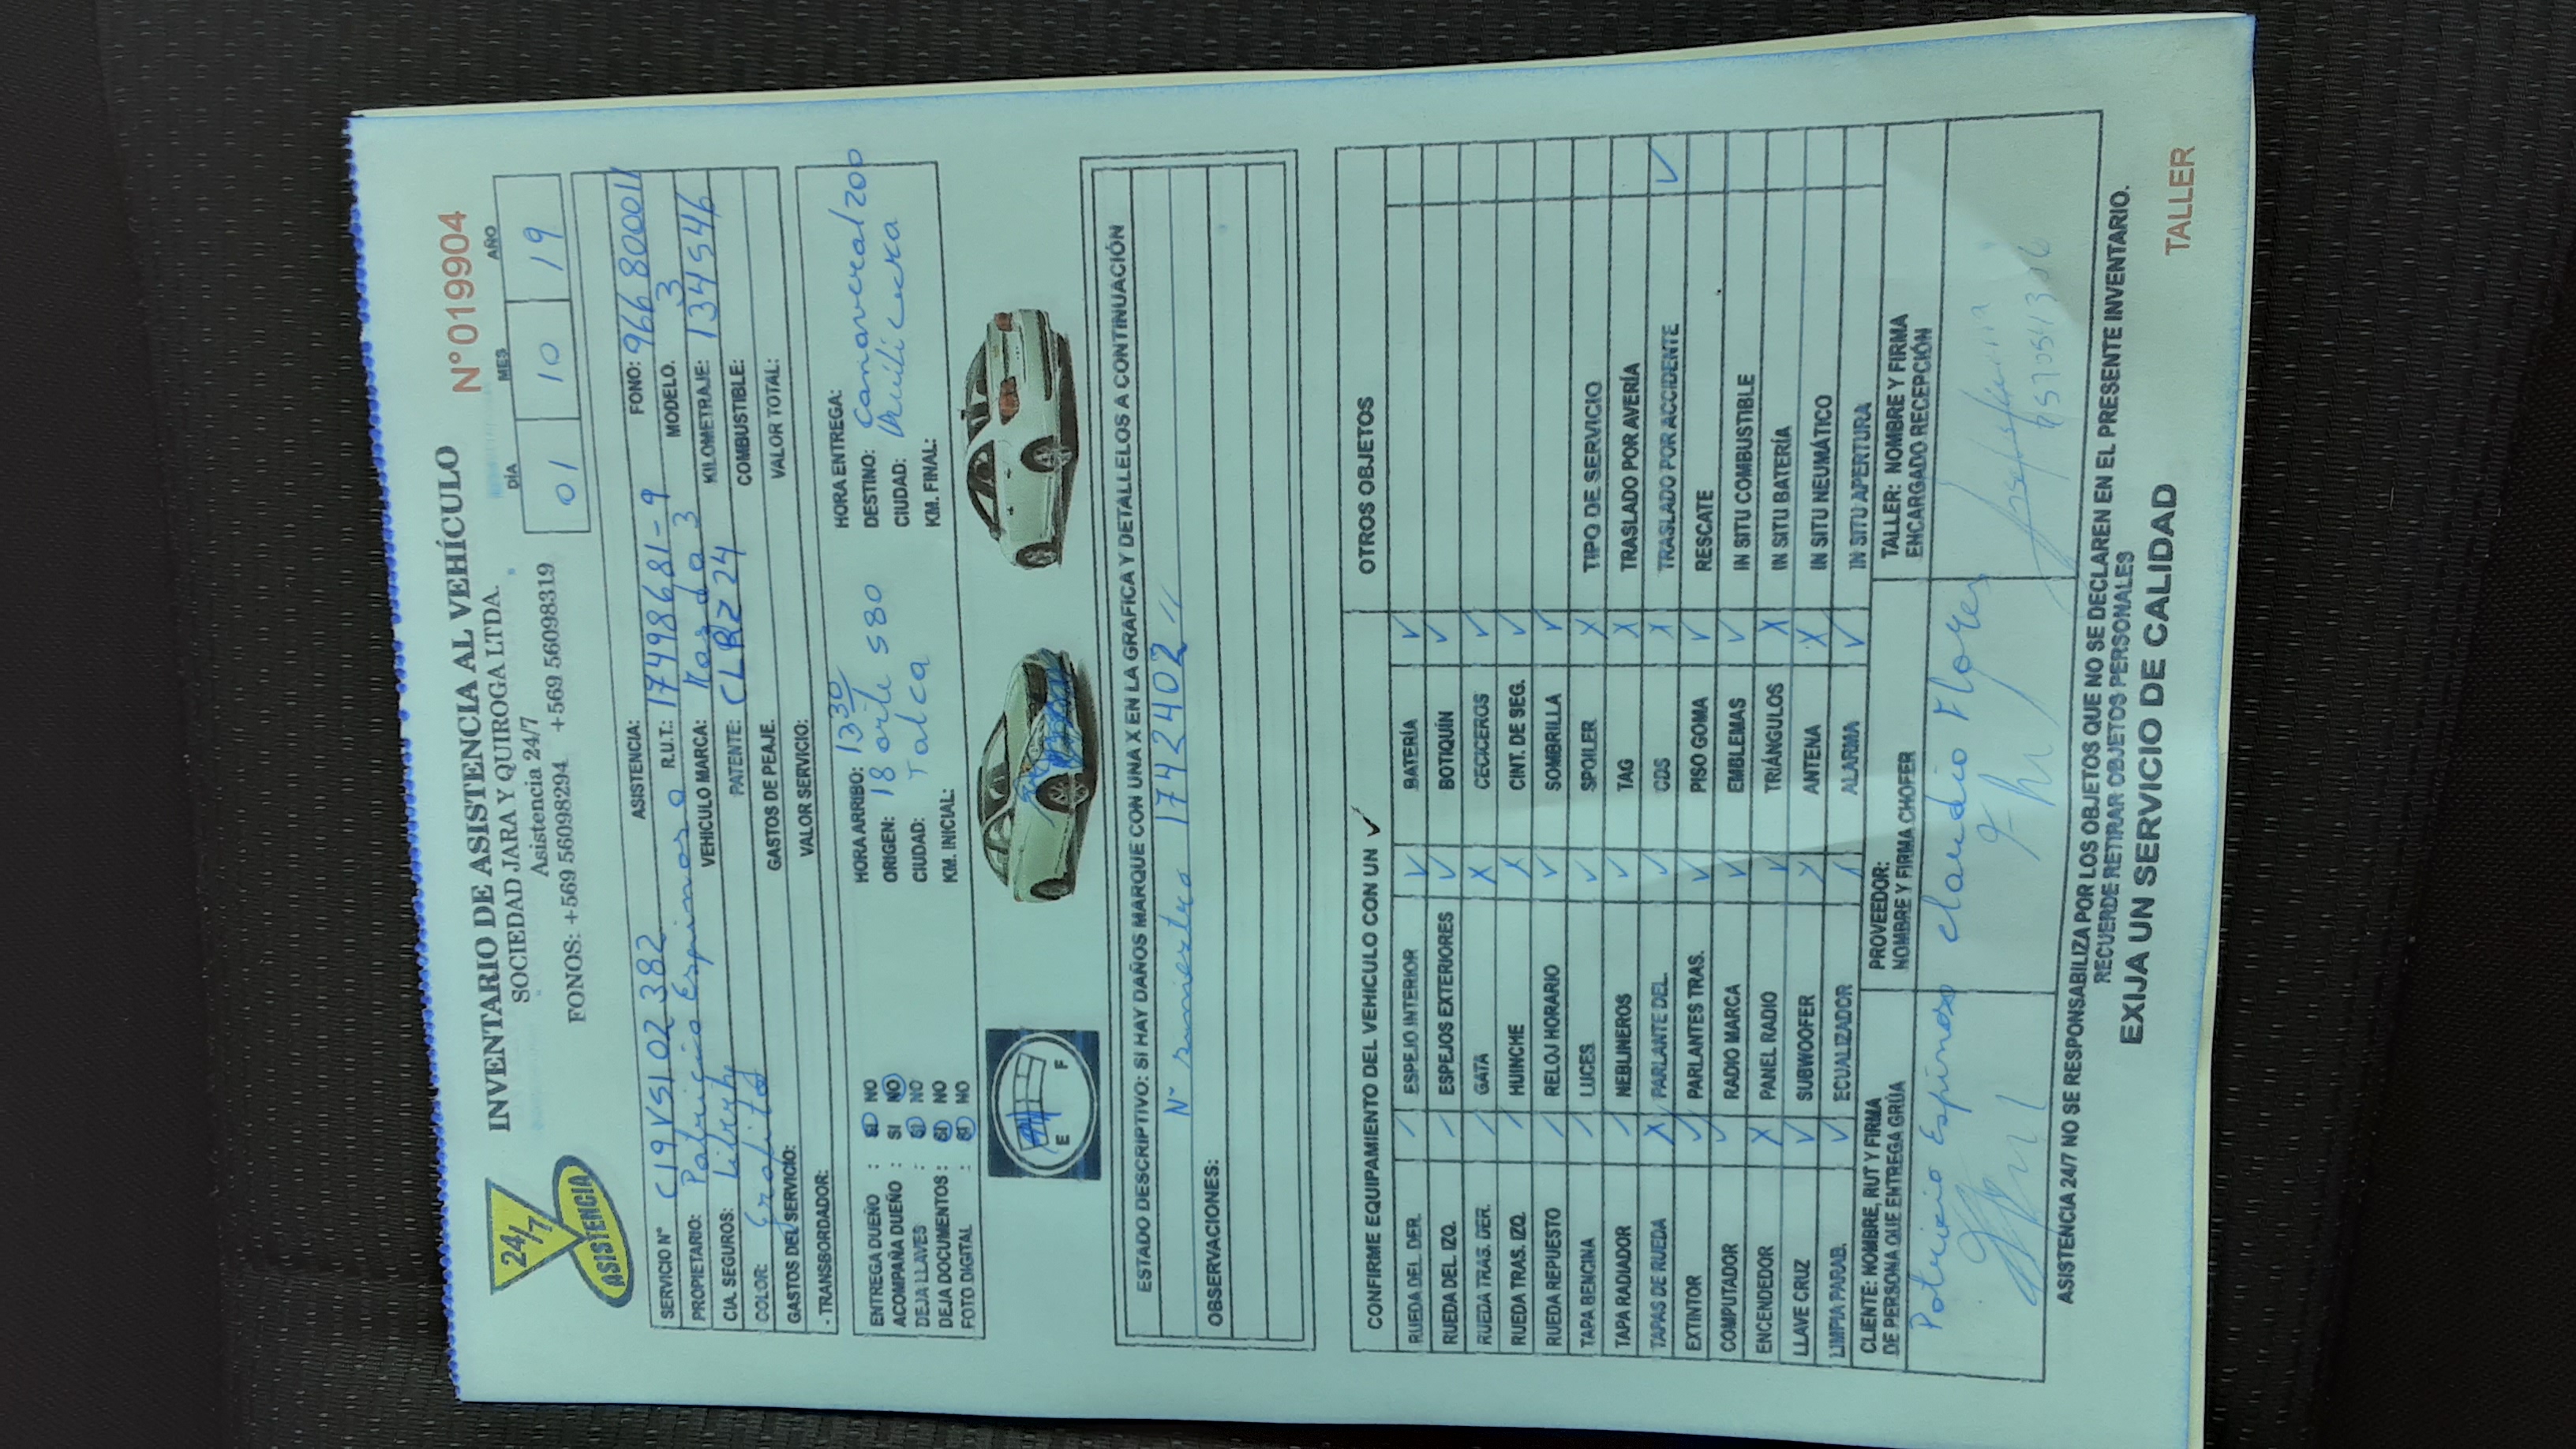 24/7
ASISTENCIA
INVENTARIO DE ASISTENCIA AL VEHÍCULO
SOCIEDAD JARA Y QUIROGA LTDA.
Asistencia 24/7
FONOS: +569 56098294 +569 56098319
N° 019904
DÍA MES AÑO
01 10 19
SERVICIO N° C19VS102382 ASISTENCIA: FONO: 966800011
PROPIETARIO: Patricio Espinoza R.U.T.: 17498681-9 MODELO. 3
CIA. SEGUROS: VEHICULO MARCA: Mazda 3 KILOMETRAJE: 134546
COLOR: Grafito PATENTE: CLBZ24 COMBUSTIBLE:
GASTOS DEL SERVICIO: GASTOS DE PEAJE. VALOR TOTAL:
- TRANSBORDADOR: VALOR SERVICIO:
ENTREGA DUEÑO : SI NO HORA ARRIBO: 13 30 HORA ENTREGA:
ACOMPAÑA DUEÑO : SI NO ORIGEN: 18 580 DESTINO: Cañaveral 200
DEJA LLAVES : SI NO CIUDAD: Talca CIUDAD:
DEJA DOCUMENTOS : SI NO KM. INICIAL: KM. FINAL:
FOTO DIGITAL : SI NO
E F
ESTADO DESCRIPTIVO: SI HAY DAÑOS MARQUE CON UNA X EN LA GRÁFICA Y DETALLELOS A CONTINUACIÓN
N° siniestro 1742402
OBSERVACIONES:
CONFIRME EQUIPAMIENTO DEL VEHICULO CON UN ✓ OTROS OBJETOS
RUEDA DEL. DER. ✓ ESPEJO INTERIOR ✓ BATERÍA ✓
RUEDA DEL. IZQ. ✓ ESPEJOS EXTERIORES ✓ BOTIQUÍN ✓
RUEDA TRAS. DER. ✓ GATA X CECICEROS ✓
RUEDA TRAS. IZQ. ✓ HUINCHE X CINT. DE SEG. ✓
RUEDA REPUESTO ✓ RELOJ HORARIO ✓ SOMBRILLA ✓
TAPA BENCINA ✓ LUCES ✓ SPOILER X TIPO DE SERVICIO
TAPA RADIADOR ✓ NEBLINEROS ✓ TAG X TRASLADO POR AVERÍA
TAPAS DE RUEDA X PARLANTE DEL. ✓ CDS X TRASLADO POR ACCIDENTE ✓
EXTINTOR ✓ PARLANTES TRAS. ✓ PISO GOMA ✓ RESCATE
COMPUTADOR ✓ RADIO MARCA ✓ EMBLEMAS ✓ IN SITU COMBUSTIBLE
ENCENDEDOR X PANEL RADIO ✓ TRIÁNGULOS X IN SITU BATERÍA
LLAVE CRUZ ✓ SUBWOOFER X ANTENA X IN SITU NEUMÁTICO
LIMPIA PARAB. ✓ ECUALIZADOR ALARMA ✓ IN SITU APERTURA
CLIENTE: NOMBRE, RUT Y FIRMA
DE PERSONA QUE ENTREGA GRÚA
Patricio Espinoza
PROVEEDOR:
NOMBRE Y FIRMA CHOFER
Claudio Flores
TALLER: NOMBRE Y FIRMA
ENCARGADO RECEPCIÓN
ASISTENCIA 24/7 NO SE RESPONSABILIZA POR LOS OBJETOS QUE NO SE DECLAREN EN EL PRESENTE INVENTARIO.
RECUERDE RETIRAR OBJETOS PERSONALES
EXIJA UN SERVICIO DE CALIDAD
TALLER